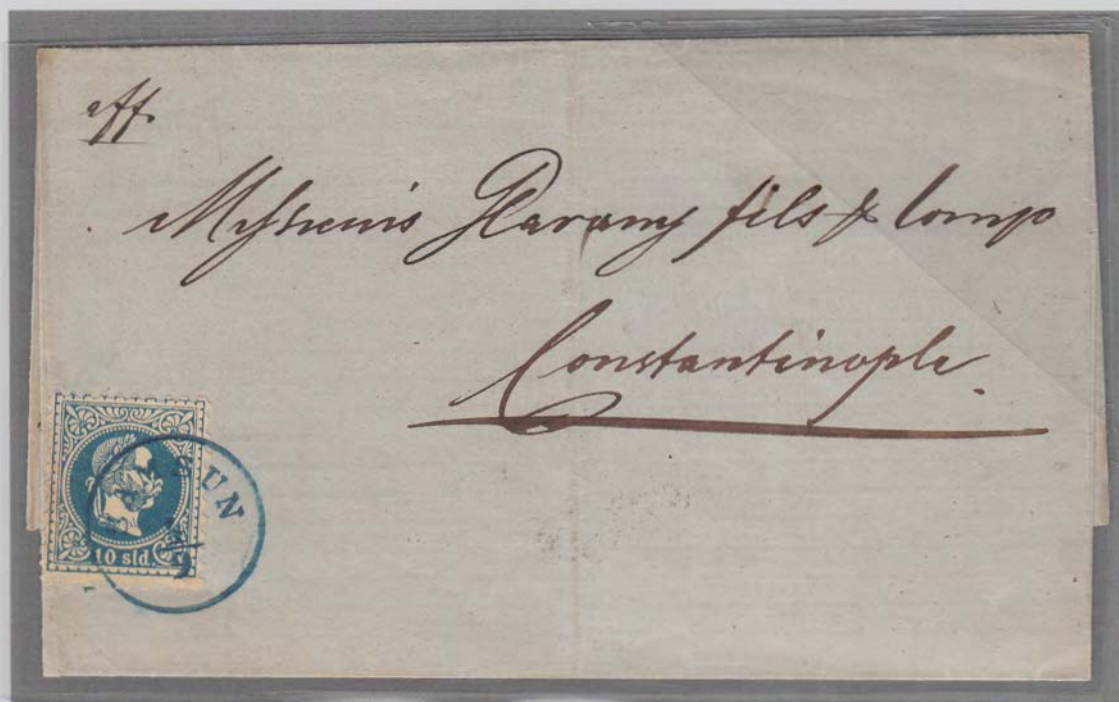 aff.
Messieurs Haramy fils & Comp
Constantinople.
SAMSUN
10 sld.